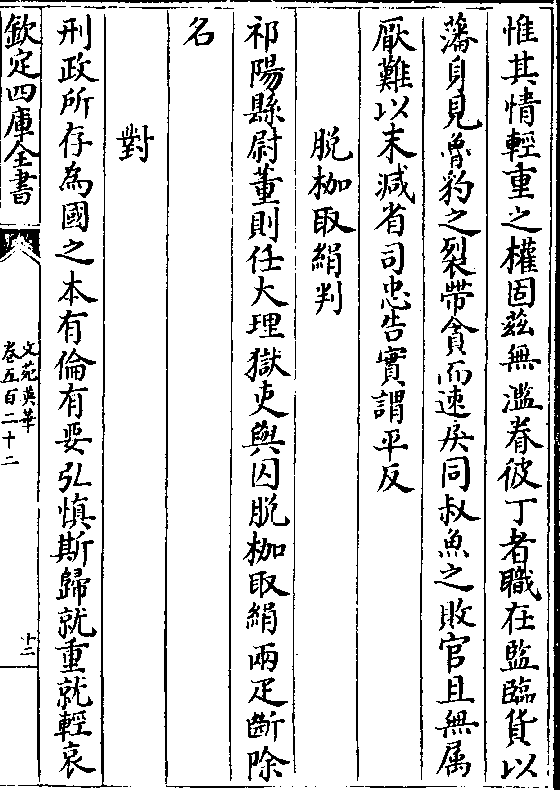 惟其情輕重之權固茲無濫眷彼丁者職在監臨貨以
藩身見魯豹之裂帶貪而速戾同叔魚之敗官且無属
厭難以末減省司忠告實謂平反
脱枷取絹判
祁陽縣尉董則任大理獄吏與囚脱枷取絹兩疋斷除
名
對
刑政所存為國之本有倫有要弘慎斯歸就重就輕哀
欽定四庫全書
文苑英華
卷五百二十二
十二